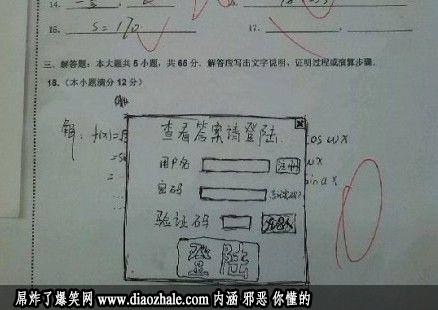 14.
16. S=170
17.
三、解答题：本大题共5小题，共65分．解答段写出文字说明、证明过程或演算步骤．
18.（本小题满分12分）
解：f(x)=
查看答案请登陆
×
os wx
用户名
注册
wx
密码
sin a x
验证码
登陆
屌炸了爆笑网 www.diaozhale.com 内涵 邪恶 你懂的